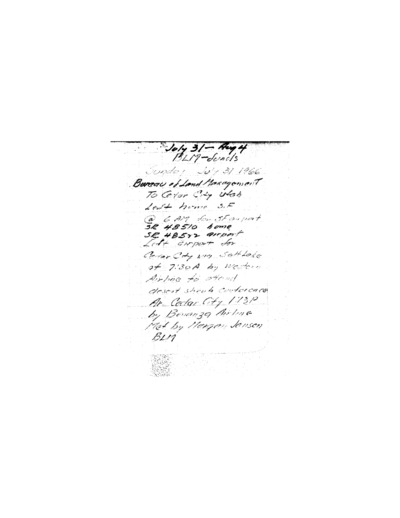 July 31 - Aug 4
BLM-
Sunday July 31 1966
Bureau of Land Management
To Cedar City Utah
Left home S.F
@ 6 AM for SF airport
SR 48510 home
SR 48522 airport
Left airport for
Cedar City via Salt Lake
at 7:30 A by Western
Airline to attend
desert shrub conference
Ar. Cedar City 1:13P
by Bonanza Airline
Met by Morgan Jensen
BLM